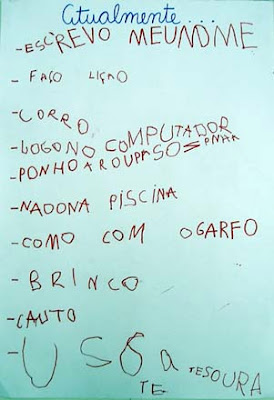 Atualmente...
-ESCREVO MEUNOME
- FAÇO LIÇAO
-CORRO
-LOGONO COMPUTADOR
-PONHO A ROUPASOSINHA
-NADONA PISCINA
-COMO COM OGARFO
-BRINCO
-CAUTO
- USO a TESOURA
TE